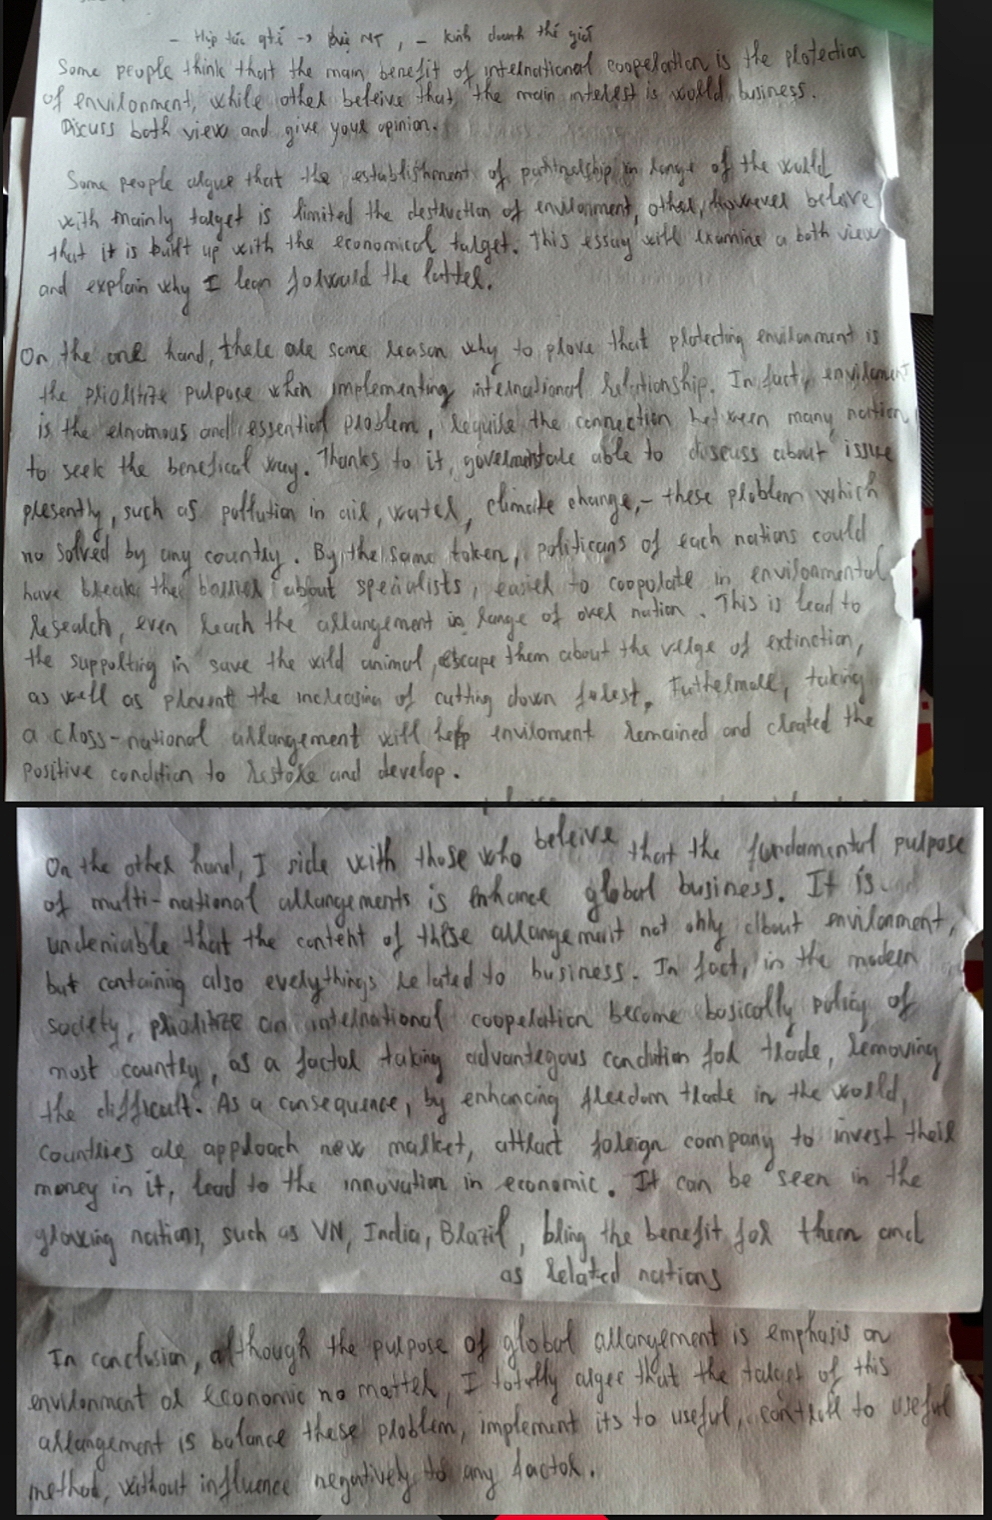 - Hợp tác qtế -> bvệ MT, - kinh doanh thế giới
Some people think that the main benefit of international cooperation is the protection
of environment, while other beleive that, the main interest is world business.
Discuss both view and give your opinion.
Some people argue that the establishment of partnership in range of the world
with mainly target is limited the destruction of environment, other, however beleive
that it is built up with the economical target. This essay will examine a both view
and explain why I lean forward the latter.
On the one hand, there are some reason why to prove that protecting environment is
the prioritize purpose when implementing international relationship. In fact, enviroment
is the enomous and essential problem, require the connection between many nation
to seek the benefical way. Thanks to it, are able to discuss about issue
presently, such as pollution in air, water, climate change, - these problem which
no solved by any country. By the same token, politicans of each nations could
have break the barrier about specialists, easier to coopolate in environmental
research, even reach the arrangement in range of over nation. This is lead to
the supporting in save the wild animal, escape them about the verge of extinction,
as well as prevent the increasing of cutting down forest. Furthermore, taking
a cross-national arrangement will help enviroment remained and created the
positive condition to restore and develop.
On the other hand, I side with those who beleive that the fundamental purpose
of multi-national arrangements is enhance global business. It is
undeniable that the content of these arrangement not only about environment,
but containing also everythings related to business. In fact, in the modern
society, prioritize an international cooperation become basically policy of
most country, as a factor taking advantegous condition for trade, removing
the difficult. As a consequence, by enhancing freedom trade in the world,
countries are approach new market, attract foreign company to invest their
money in it, lead to the innovation in economic. It can be seen in the
growing nations, such as VN, India, Brazil, bring the benefit for them and
as related nations
In conclusion, although the purpose of global arrangement is emphasis on
environment or economic no matter, I totally argee that the target of this
arrangement is balance these problem, implement its to useful, to useful
method, without influence negatively to any factor.